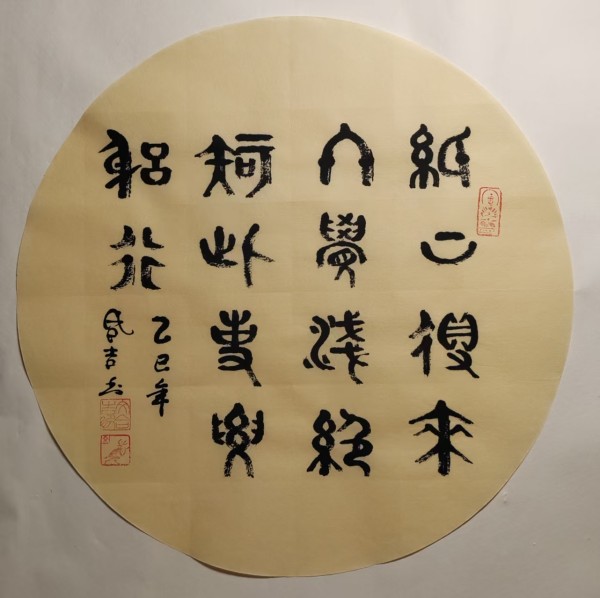 紙上得來
終覺淺絕
知此事要
躬行
乙巳年
吉书